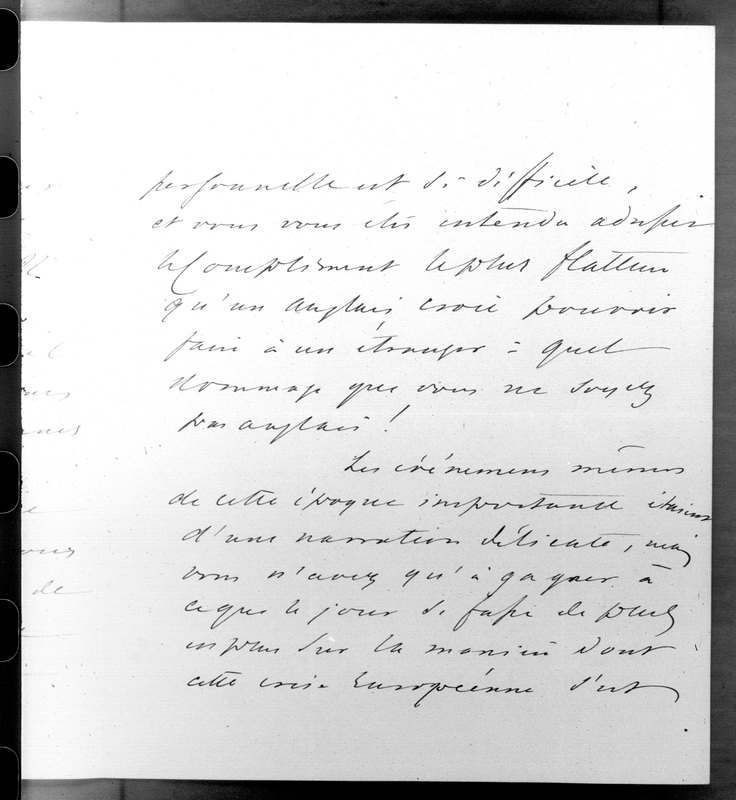 personnelle est si difficile,
et vous vous êtes entendu adresser
le Compliment le plus flatteur
qu'un anglais croie pouvoir
faire à un étranger = quel
dommage que vous ne soyez
pas anglais!
Les événemens mêmes
de cette époque importante étaient
d'une narration délicate, mais
vous n'avez qu'à gagner à
ce que le jour se fasse de plus
en plus sur la manière dont
cette crise Européenne s'est
de